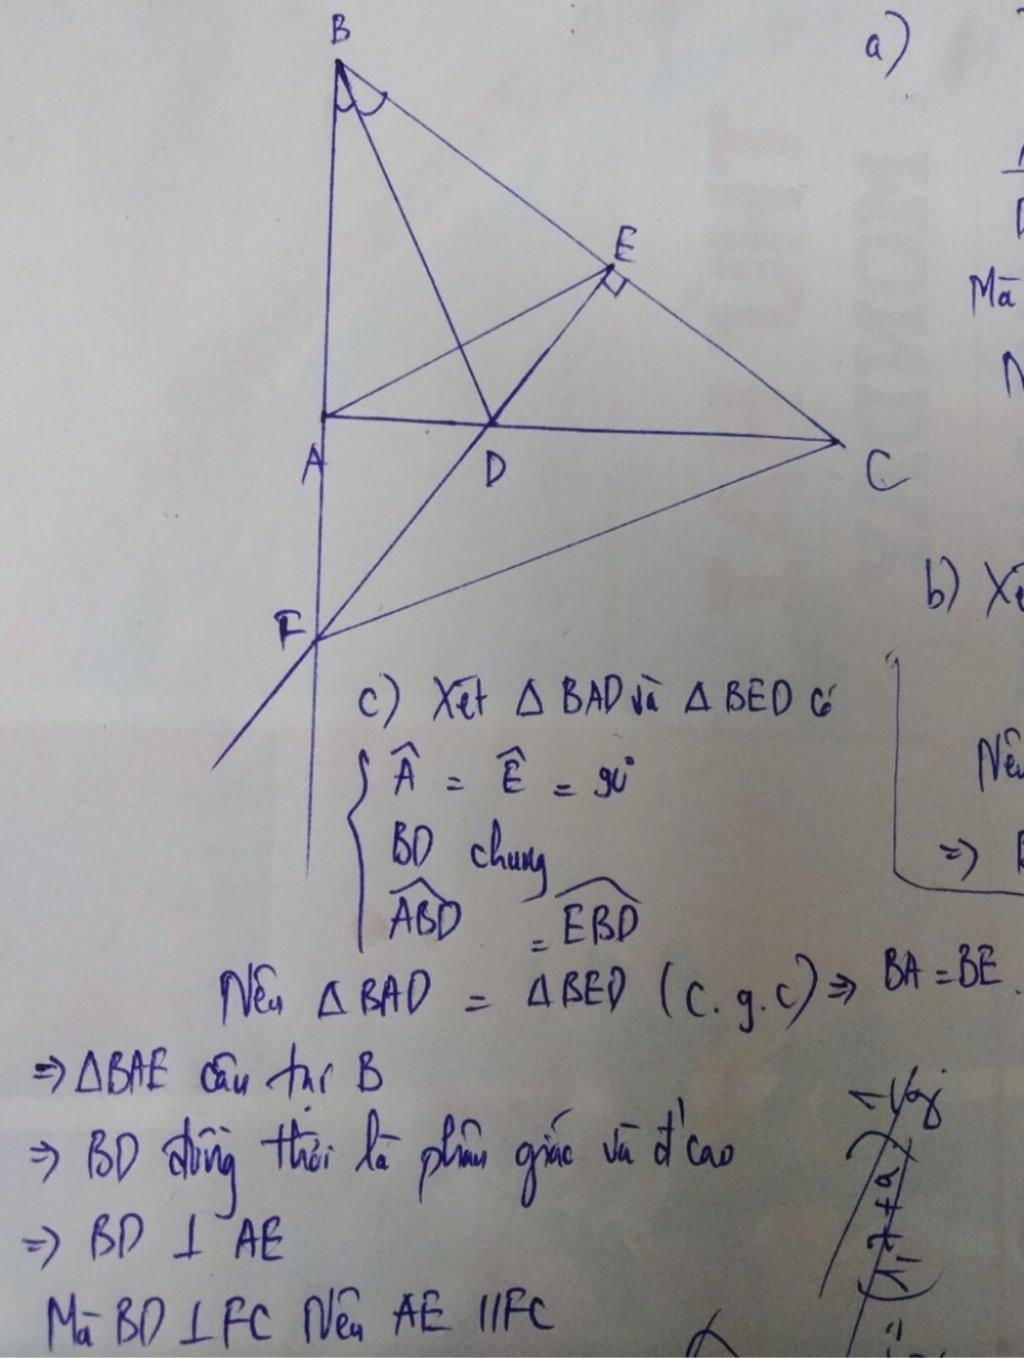 B
a)
E
Mà
A
D
C
F
b) Xé
c) Xét Δ BAD và Δ BED có
Â = Ê = 90°
Nên
BD chung
=>
ABD = EBD
Nên ΔBAD = ΔBED (c.g.c) => BA = BE.
=> ΔBAE cân tại B
=> BD đồng thời là phân giác và đ' cao
=> BD ⊥ AE
Mà BD ⊥ FC Nên AE // FC